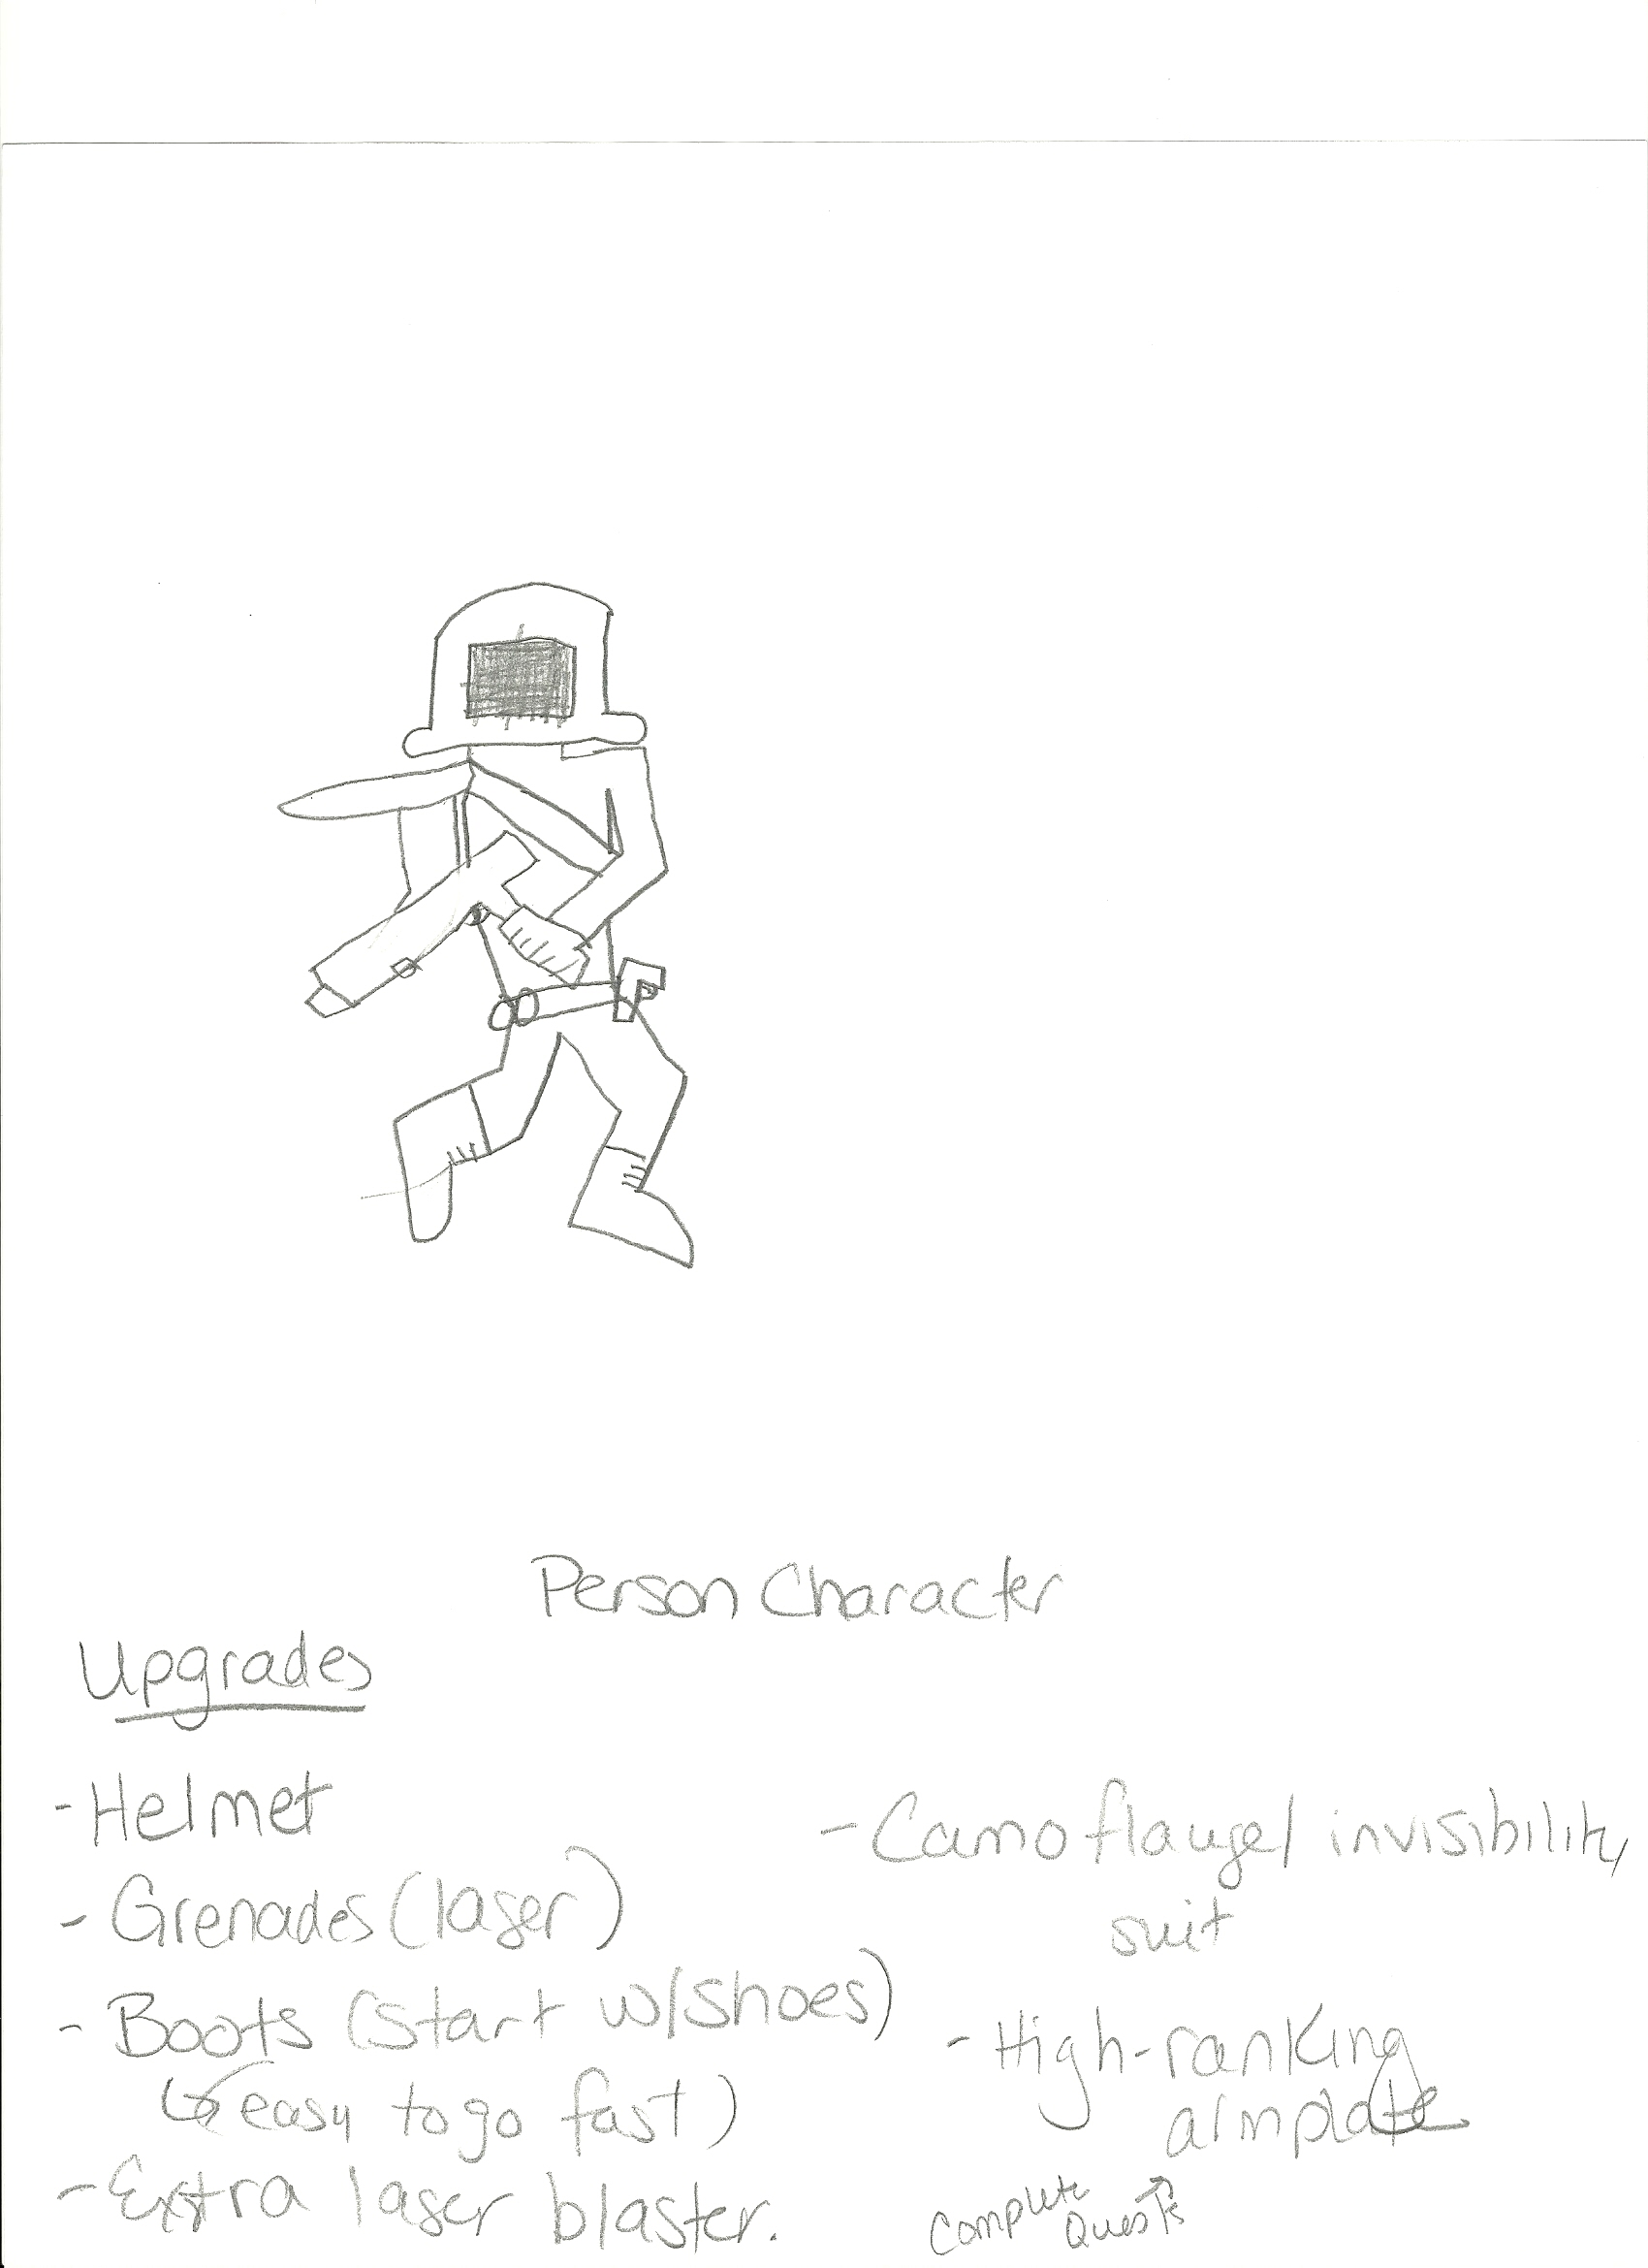 Person Character
Upgrades
- Helmet
- Grenades (laser)
- Boots (start w/shoes)
(↳ easy to go fast)
- Extra laser blaster.
- Camoflauge/ invisibility
suit
- High-ranking
armplate
Complete
Quests